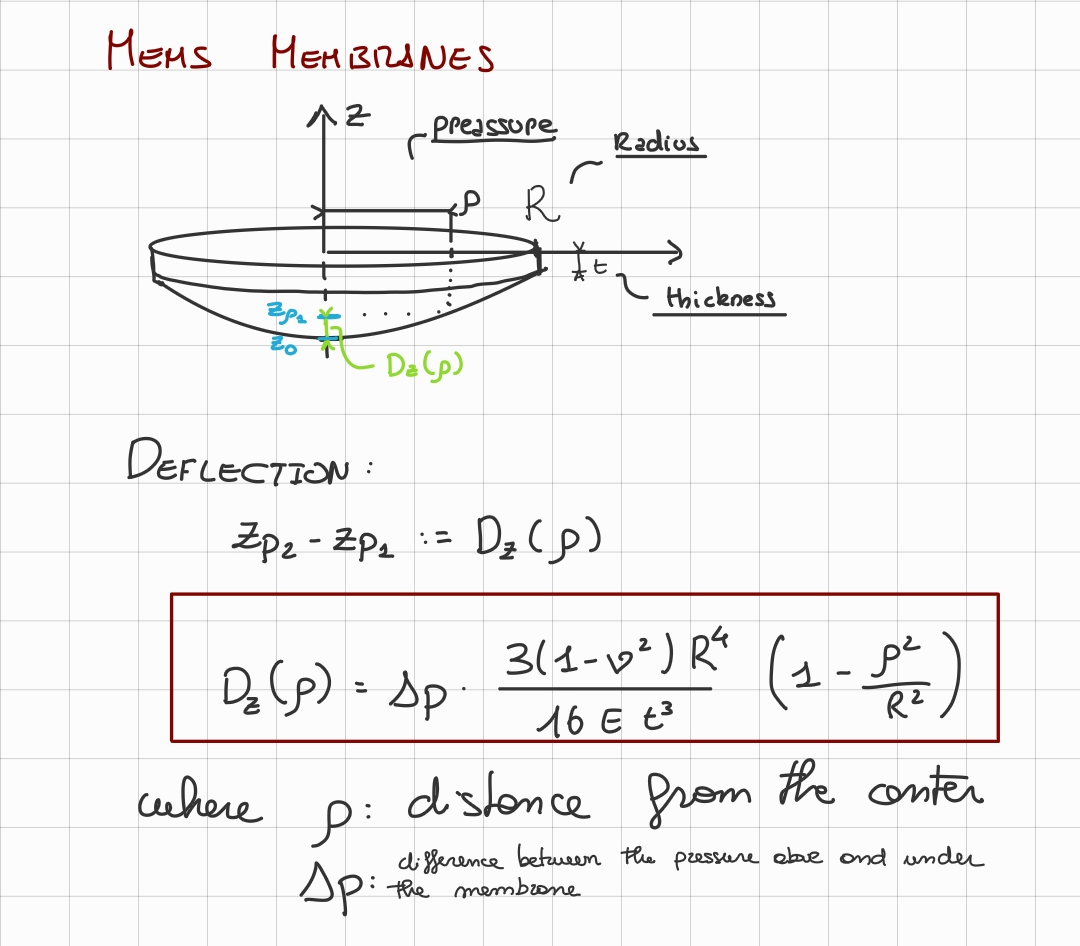 MEMS MEMBRANES
z
preassure
Radius
ρ
R
t
thickness
zρ1
z0
Dz(ρ)
DEFLECTION:
zp2 - zp1 := Dz(ρ)
Dz(ρ) = Δp · 3(1-ν²) R⁴ / 16 E t³ (1 - ρ²/R²)
where ρ: distance from the center
difference between the pressure above and under
Δp: the membrane